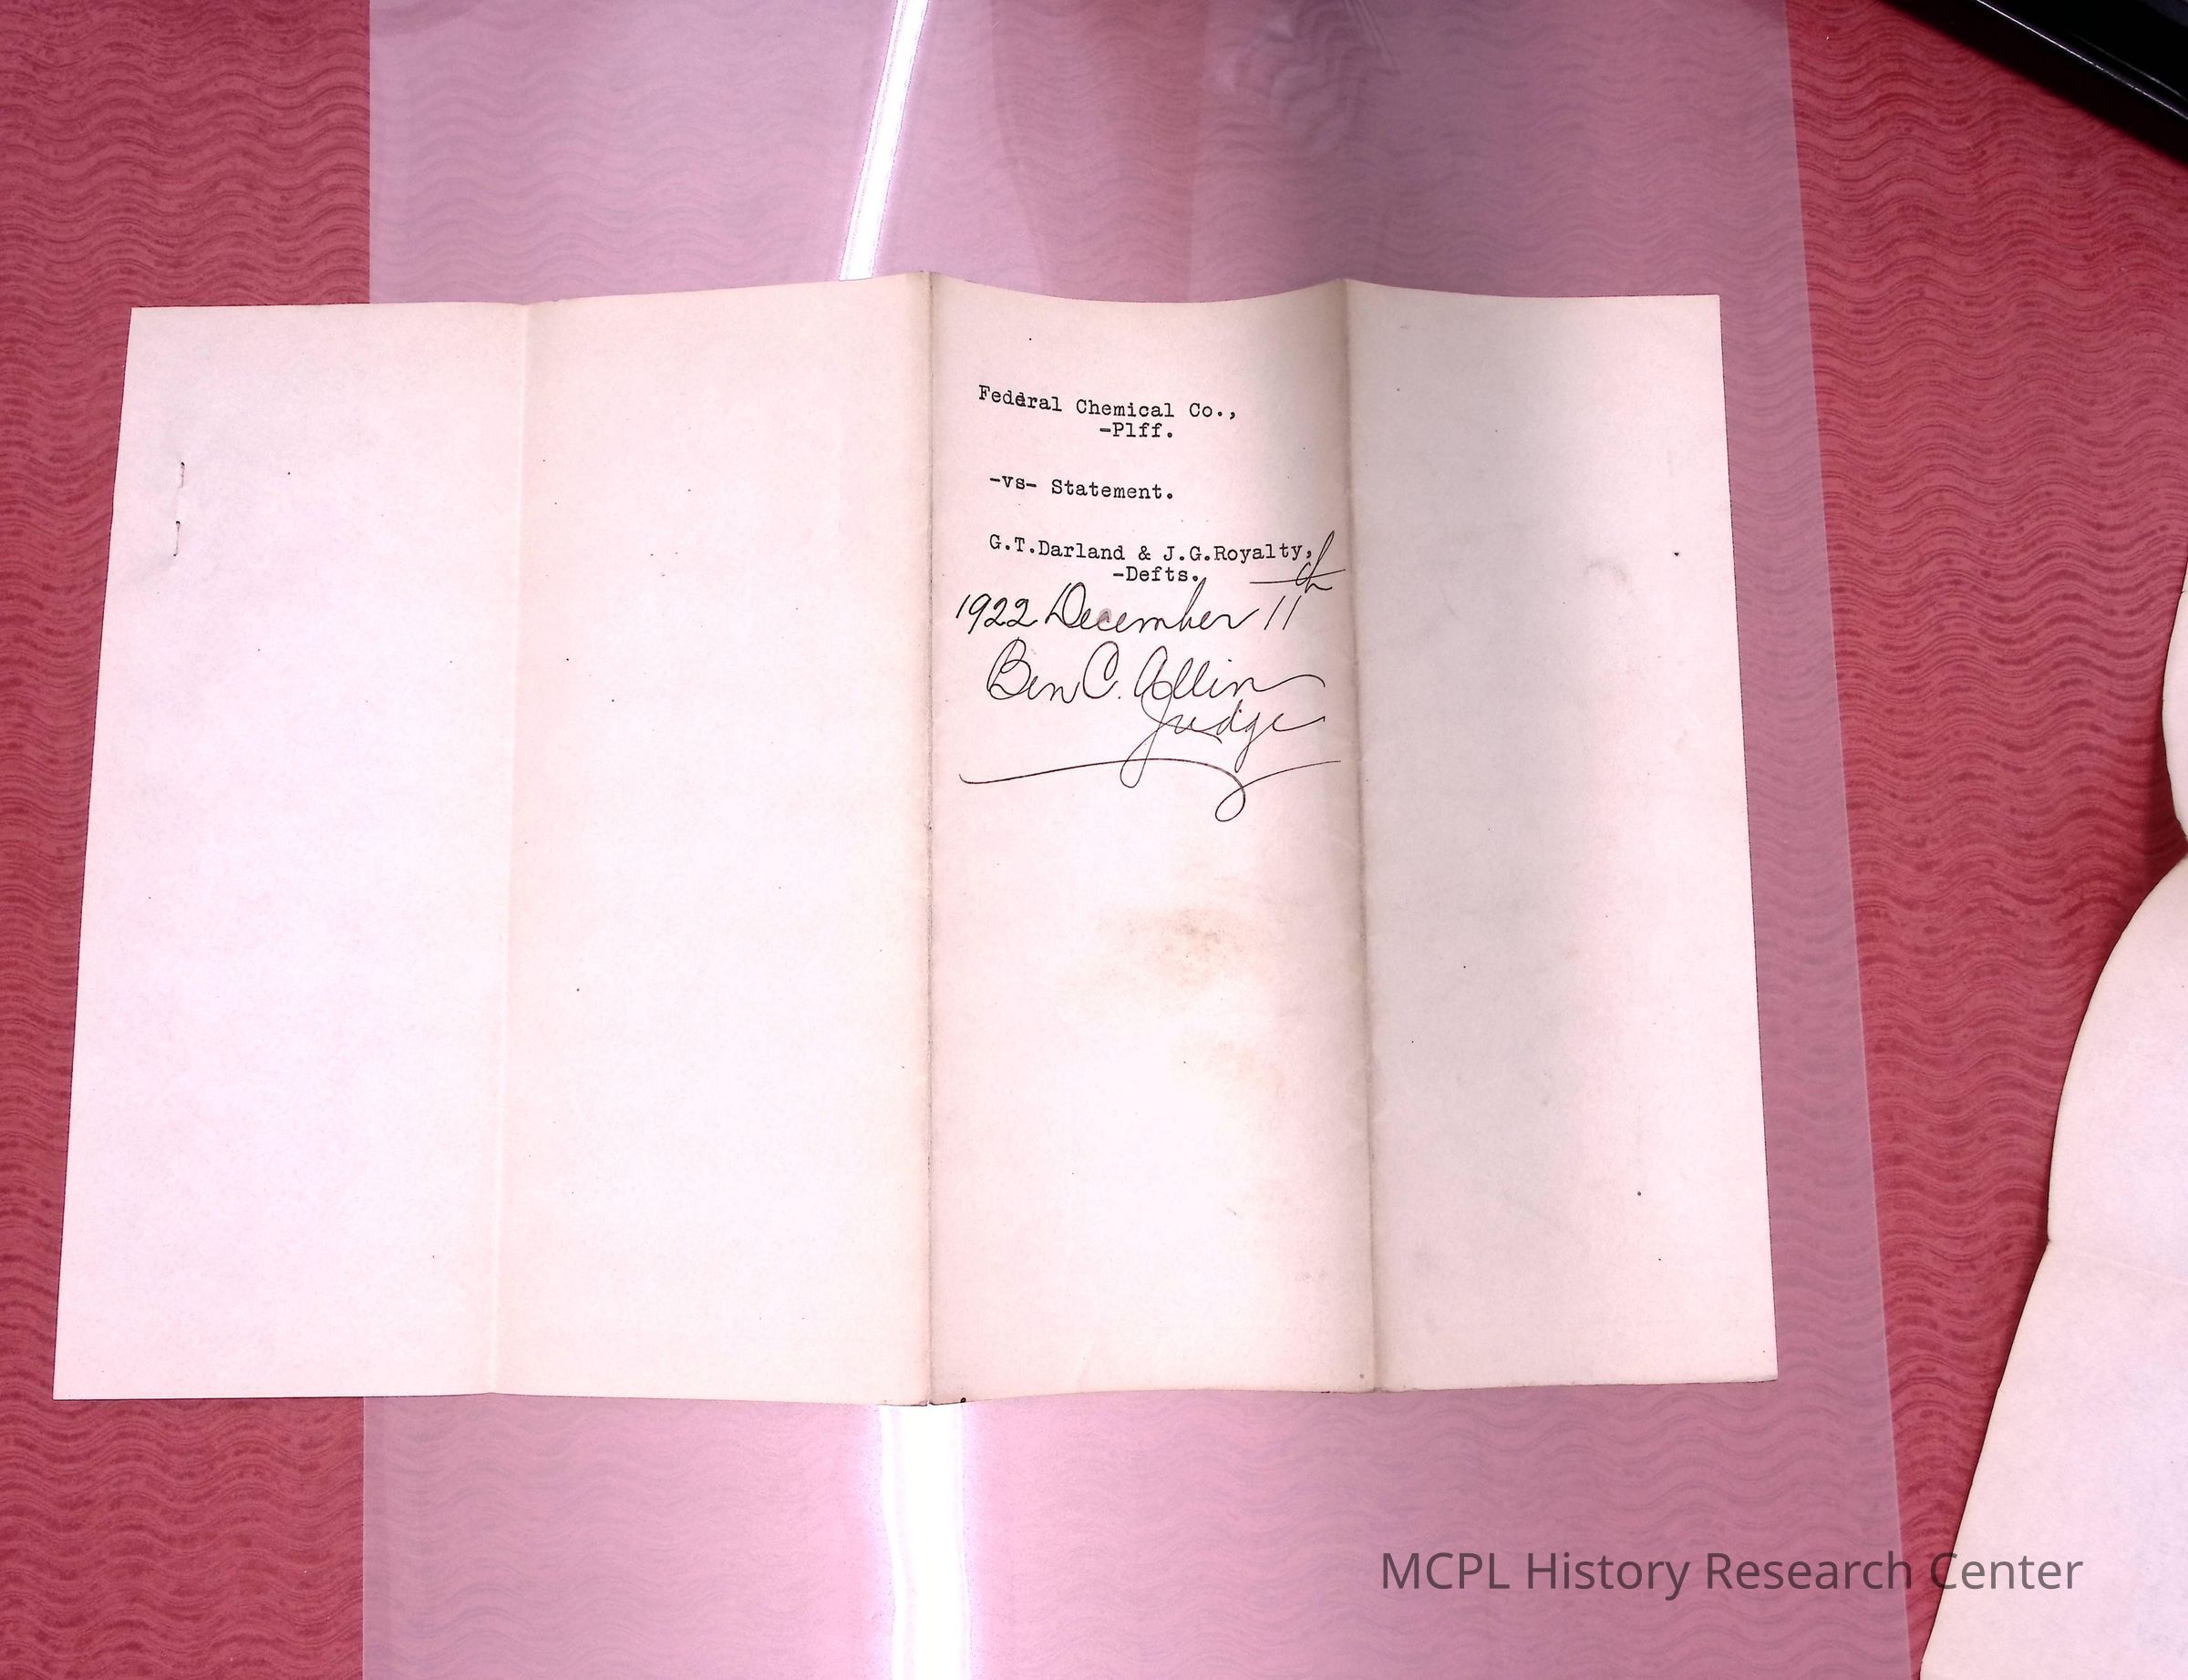 Federal Chemical Co.,
-Plff.
-vs- Statement.
G.T.Darland & J.G.Royalty,
-Defts.
1922 December 11th
Ben C. Allin
Judge
MCPL History Research Center